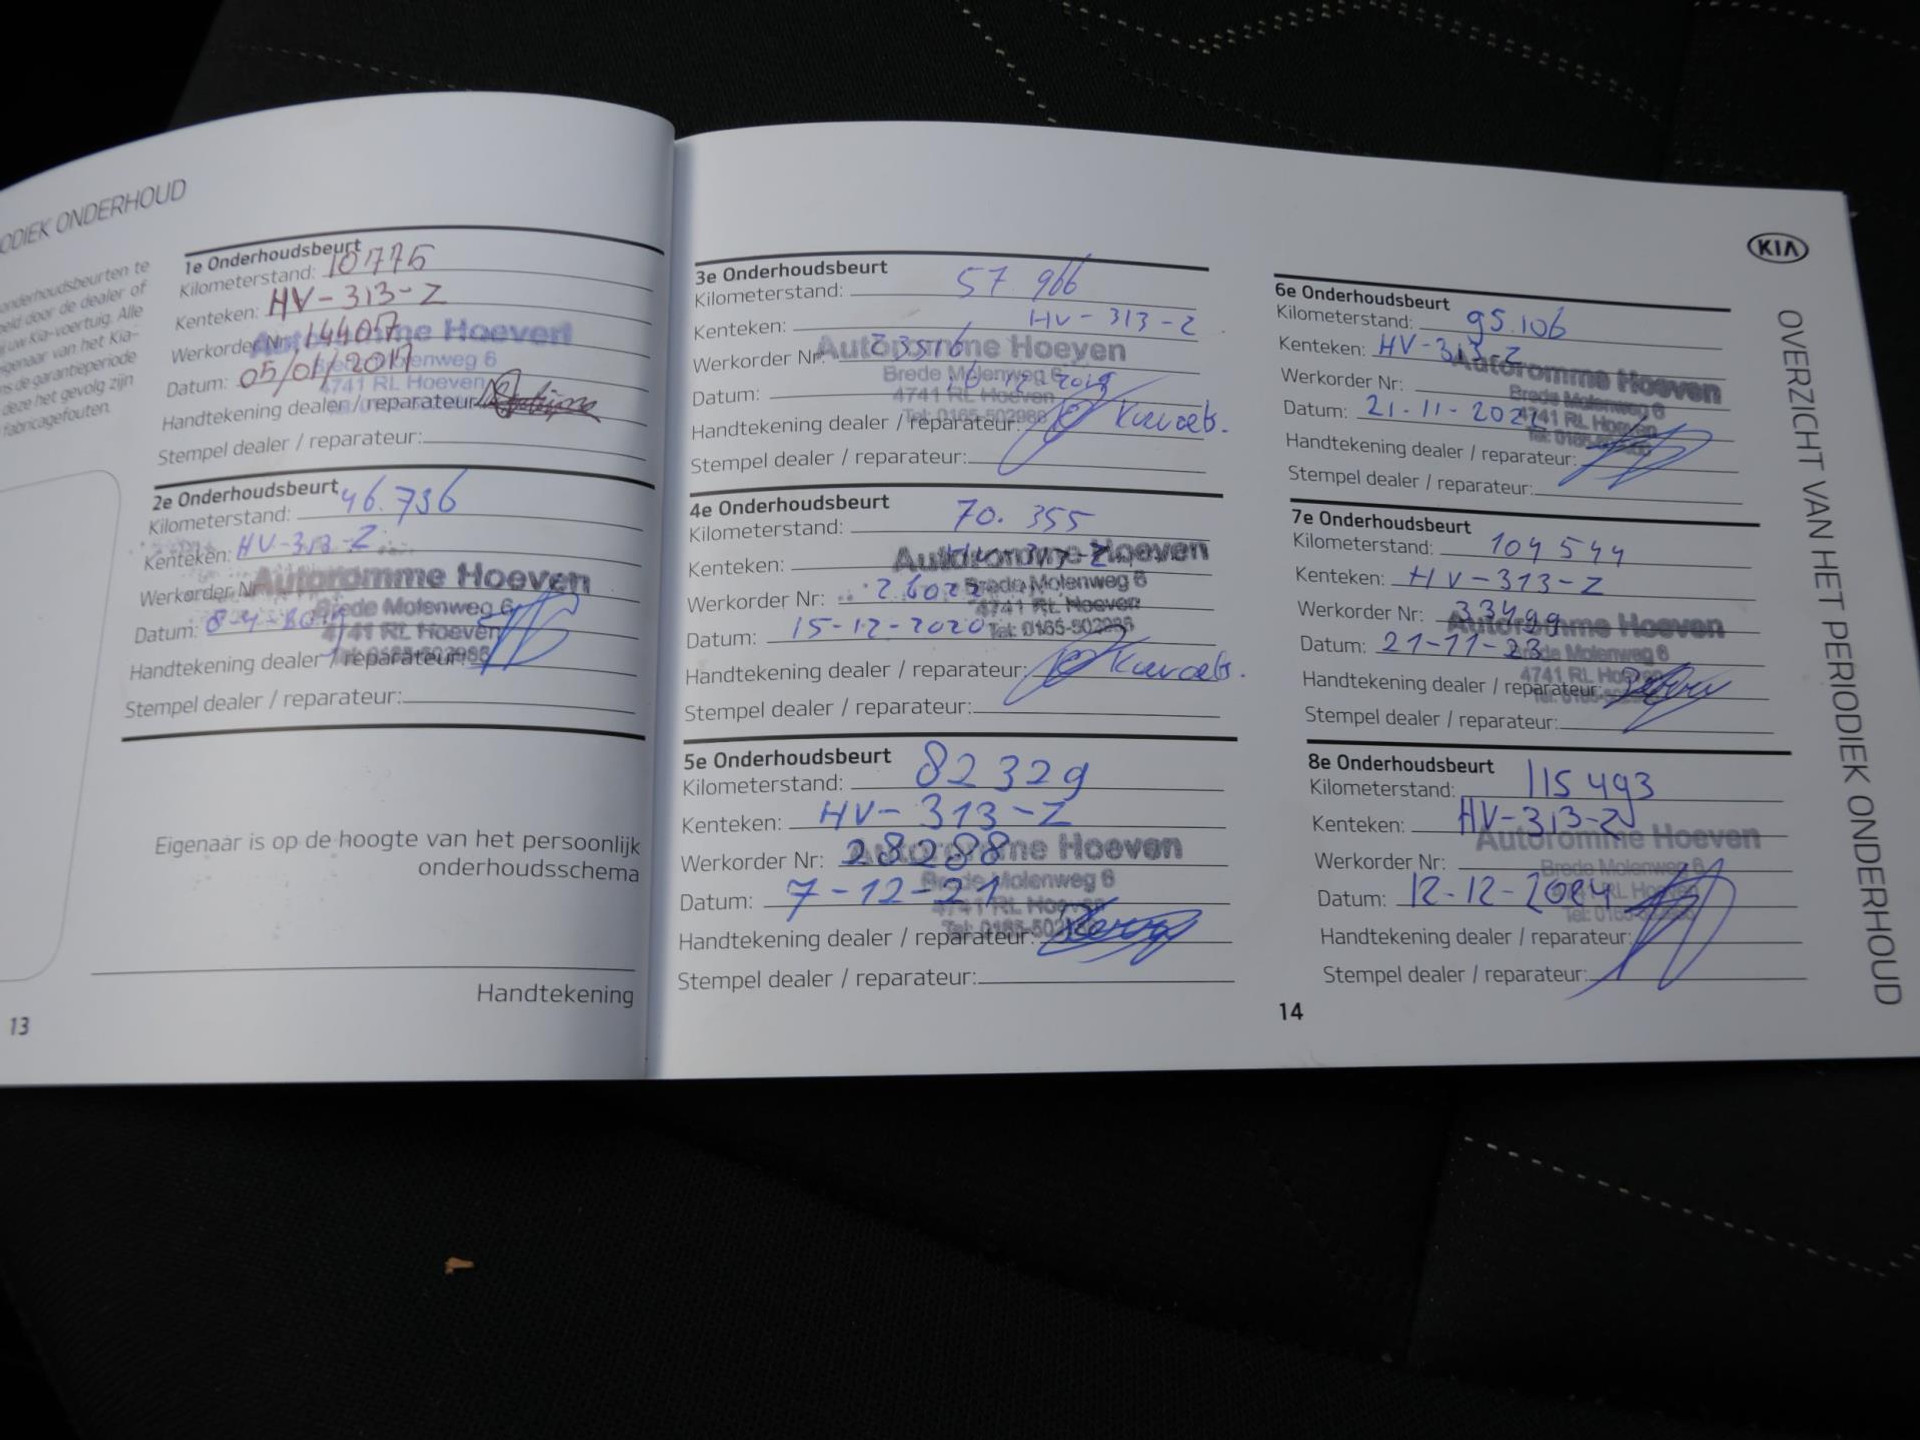 ODIEK ONDERHOUD
onderhoudsbeurten te
eld door de dealer of
uw Kia-voertuig. Alle
genaar van het Kia-
s de garantieperiode
deze het gevolg zijn
fabricagefouten.
1e Onderhoudsbeurt
Kilometerstand: 10775
Kenteken: HV-313-Z
Werkorder Nr: 14407
Datum: 05/01/2017
Handtekening dealer / reparateur:
Stempel dealer / reparateur:
Autoromme Hoeven
Brede Molenweg 6
4741 RL Hoeven
2e Onderhoudsbeurt
Kilometerstand: 46.736
Kenteken: HV-313-Z
Werkorder Nr
Datum: 8-4-2019
Handtekening dealer / reparateur:
Stempel dealer / reparateur:
Autoromme Hoeven
Brede Molenweg 6
4741 RL Hoeven
Tel: 0165-502988
Eigenaar is op de hoogte van het persoonlijk
onderhoudsschema
Handtekening
13
3e Onderhoudsbeurt
Kilometerstand: 57 966
Kenteken: HV-313-Z
Werkorder Nr: 23516
Datum: 12 2019
Handtekening dealer / reparateur:
Stempel dealer / reparateur:
Autoromme Hoeven
Brede Molenweg 6
4741 RL Hoeven
Tel: 0165-502988
4e Onderhoudsbeurt
Kilometerstand: 70.355
Kenteken: HV-313-Z
Werkorder Nr:
Datum: 15-12-2020
Handtekening dealer / reparateur:
Stempel dealer / reparateur:
Autoromme Hoeven
Brede Molenweg 6
4741 RL Hoeven
Tel: 0165-502988
5e Onderhoudsbeurt
Kilometerstand: 82329
Kenteken: HV-313-Z
Werkorder Nr: 28288
Datum: 7-12-21
Handtekening dealer / reparateur:
Stempel dealer / reparateur:
Autoromme Hoeven
Brede Molenweg 6
4741 RL Hoeven
6e Onderhoudsbeurt
Kilometerstand: 95.106
Kenteken: HV-313-Z
Werkorder Nr:
Datum: 21-11-2022
Handtekening dealer / reparateur:
Stempel dealer / reparateur:
Autoromme Hoeven
Brede Molenweg 6
4741 RL Hoeven
7e Onderhoudsbeurt
Kilometerstand: 104544
Kenteken: HV-313-Z
Werkorder Nr: 33499
Datum: 21-11-23
Handtekening dealer / reparateur:
Stempel dealer / reparateur:
Autoromme Hoeven
Brede Molenweg 6
8e Onderhoudsbeurt
Kilometerstand: 115493
Kenteken: HV-313-Z
Werkorder Nr:
Datum: 12-12-2024
Handtekening dealer / reparateur:
Stempel dealer / reparateur:
Autoromme Hoeven
Brede Molenweg 6
14
KIA
OVERZICHT VAN HET PERIODIEK ONDERHOUD